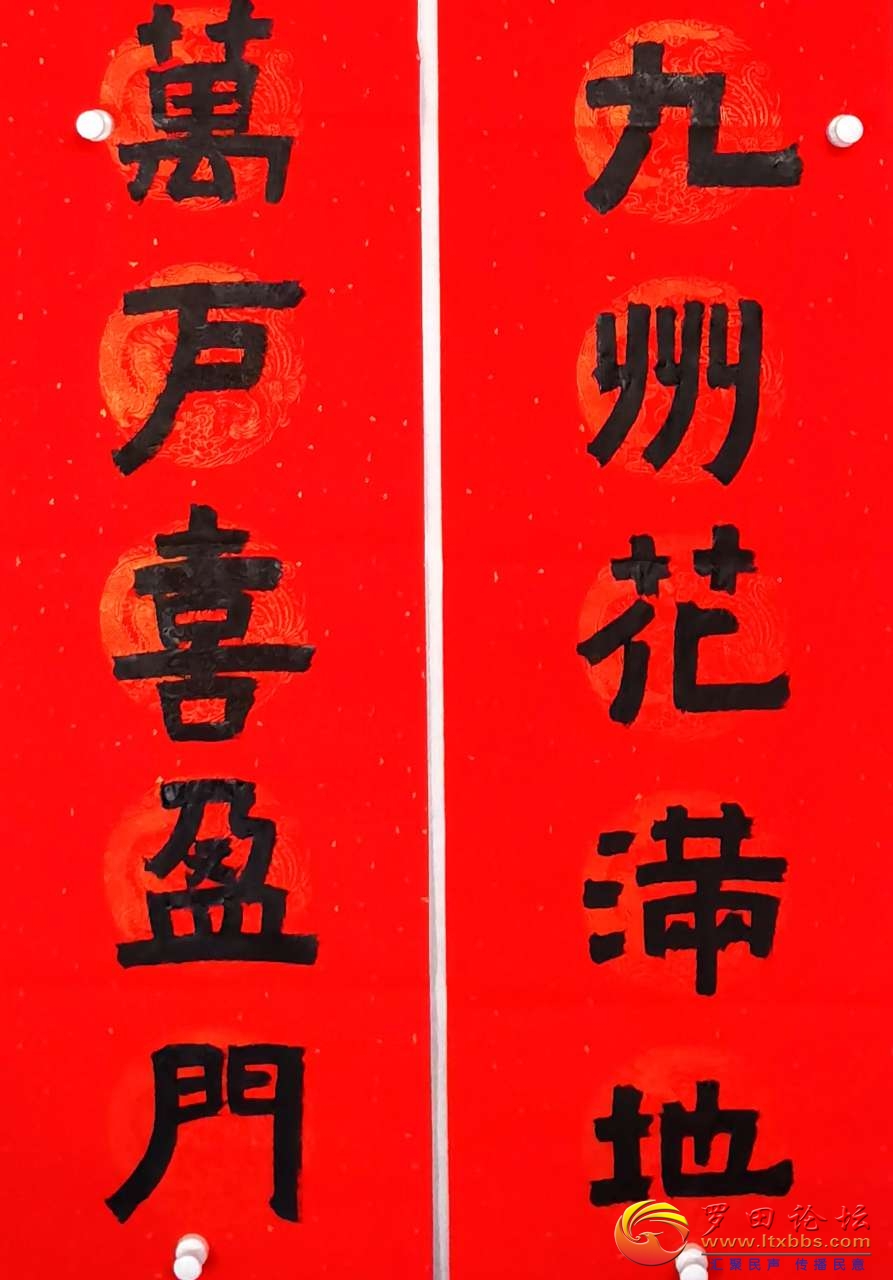 九州花滿地
萬户喜盈門
罗田论坛
www.ltxbbs.com
汇聚民声 传播民意